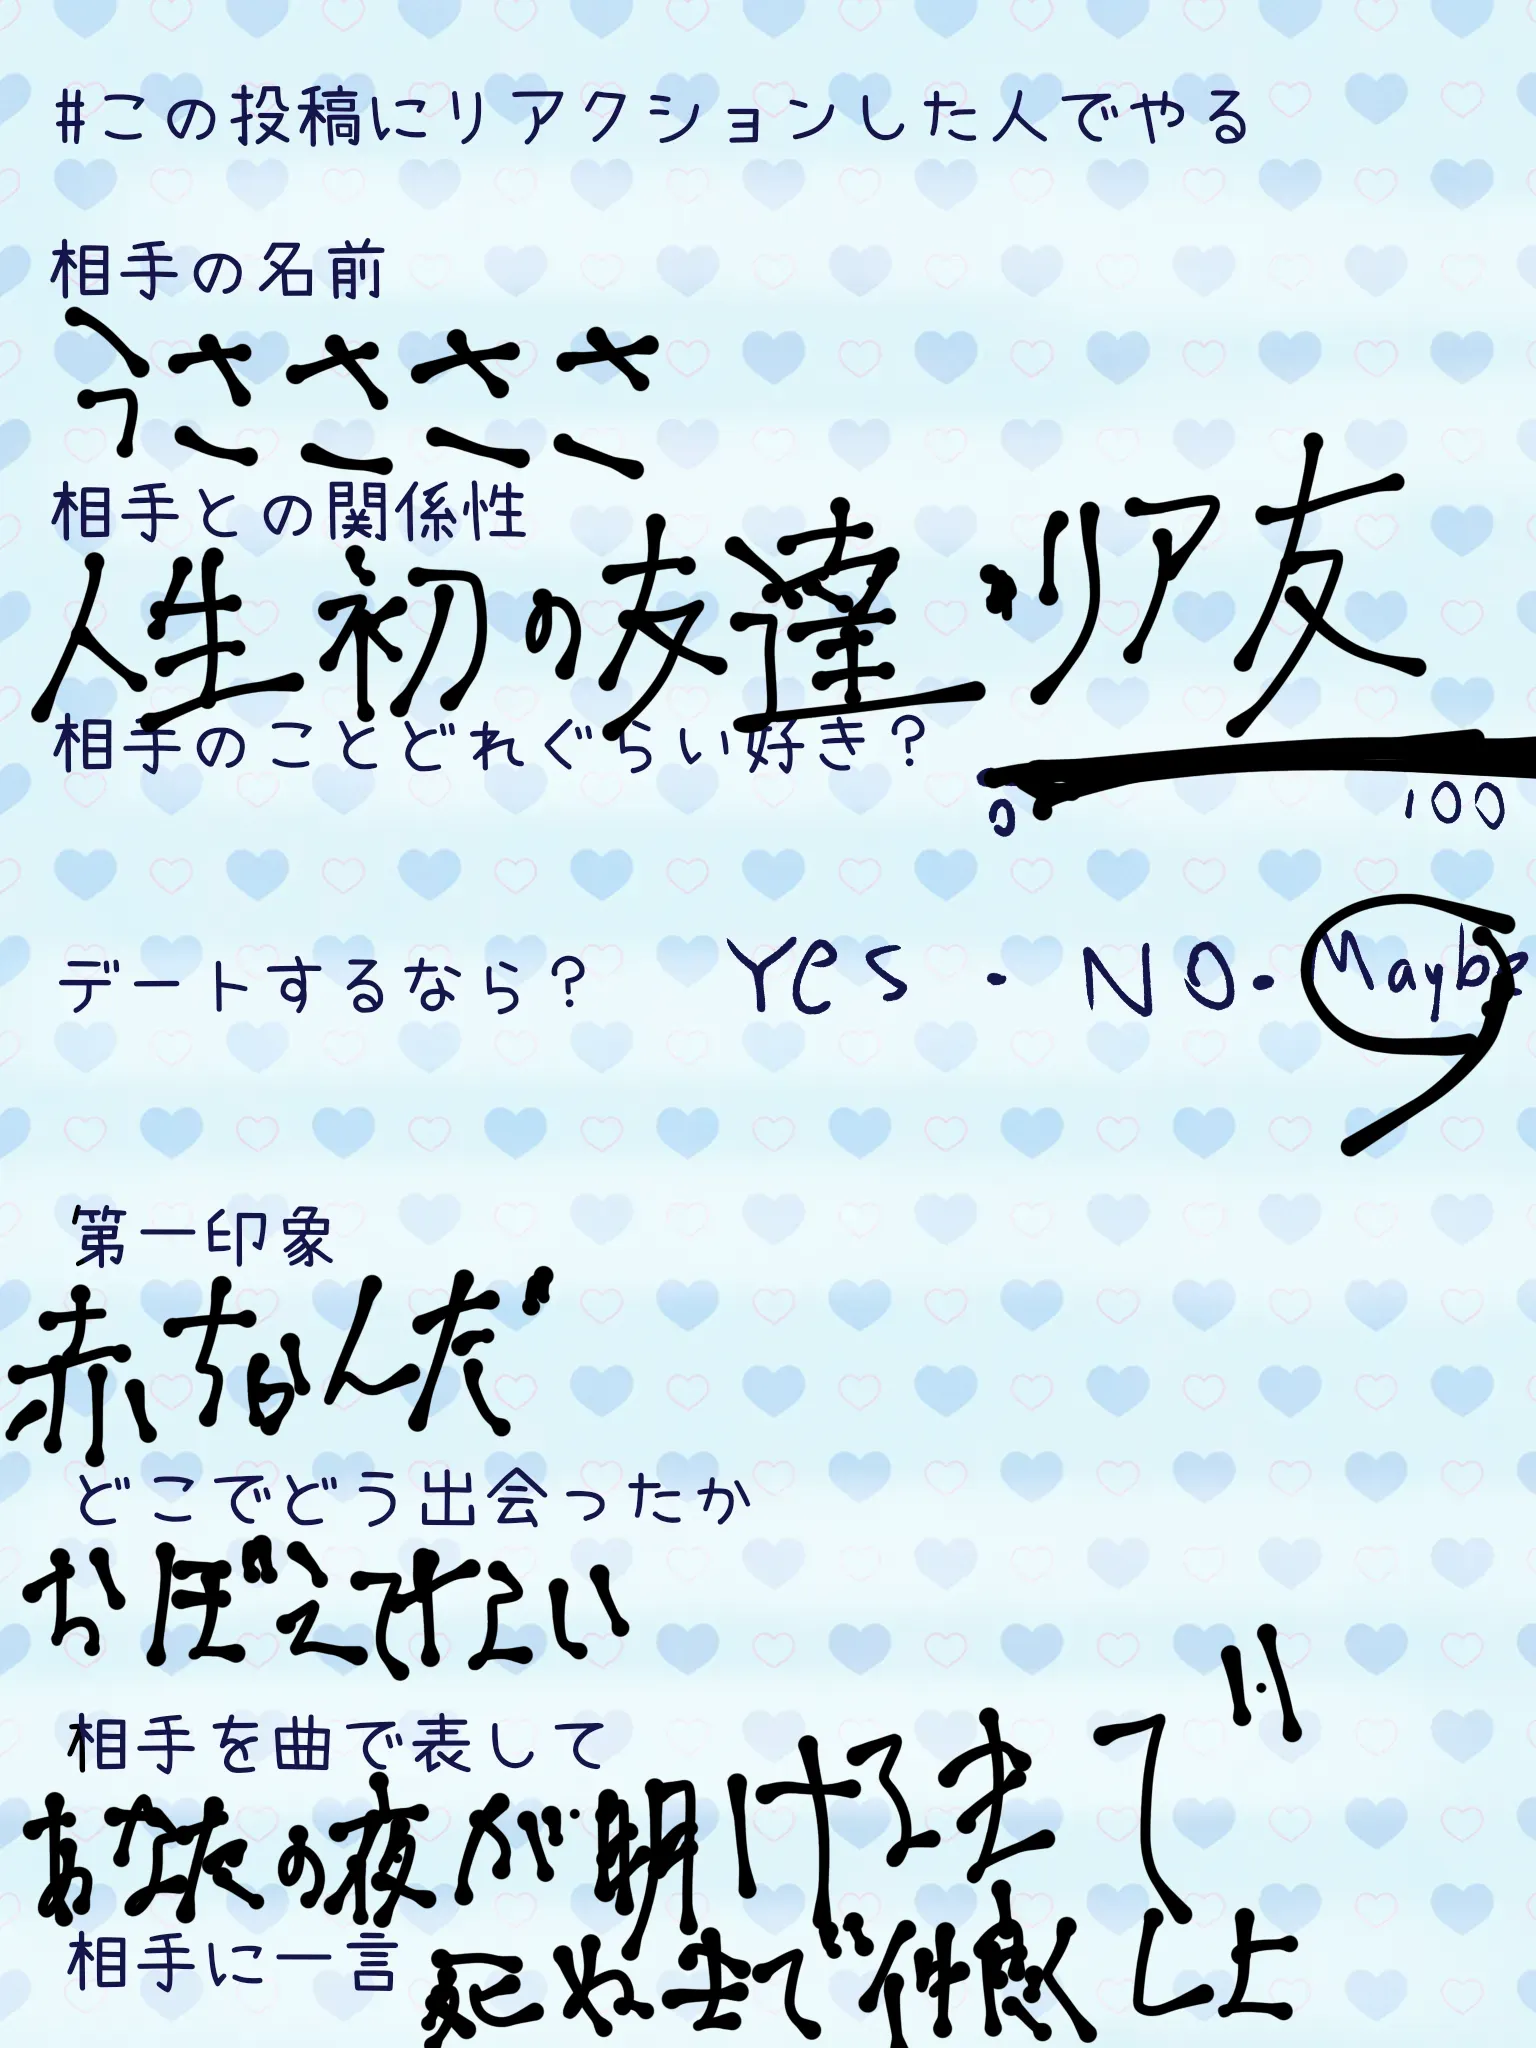 #この投稿にリアクションした人でやる
相手の名前
うささささ
相手との関係性
人生初の友達、リア友
相手のことどれぐらい好き?
0 100
デートするなら? Yes・NO・Maybe
第一印象
赤ちゃんだ
どこでどう出会ったか
おぼえてない
相手を曲で表して
あなたの夜が明けるまで
相手に一言
死ぬまで仲良くしよ